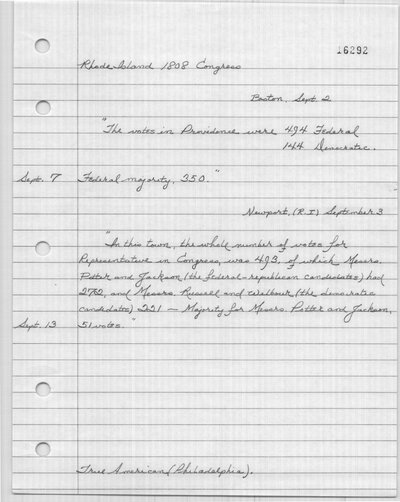 16292
Rhode Island 1808 Congress
Boston, Sept. 2
"The votes in Providence were 494 Federal
144 Democratic.
Sept. 7 Federal majority, 350."
Newport, (R.I) September 3
"In this town, the whole number of votes for
Representative in Congress, was 493, of which Messrs.
Potter and Jackson (the federal-republican candidates) had
272, and Messrs. Russell and Wilbour (the democratic
candidates) 221 — Majority for Messrs. Potter and Jackson,
Sept. 13 51 votes."
True American (Philadelphia).